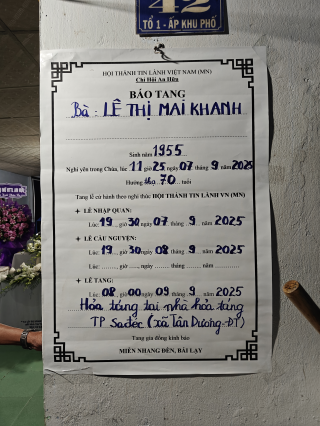 42
TỔ 1 - ẤP KHU PHỐ
HỘI THÁNH TIN LÀNH VIỆT NAM (MN)
Chi Hội An Hữu
BÁO TANG
Bà: LÊ THỊ MAI KHANH
Sinh năm 1955
Nghỉ yên trong Chúa, lúc 11 giờ 25 ngày 07 tháng 9 năm 2025
Hưởng thọ 70 tuổi
Tang lễ cử hành theo nghi thức HỘI THÁNH TIN LÀNH VN (MN)
+ LỄ NHẬP QUAN:
Lúc: 19 giờ 30 ngày 07 tháng 9 năm 2025
+ LỄ CẦU NGUYỆN:
Lúc: 19 giờ 30 ngày 08 tháng 9 năm 2025
Lúc: ......, giờ ......, ngày ...... tháng ...... năm ......
+ LỄ TANG:
Lúc: 08 giờ 00 ngày 09 tháng 9 năm 2025
Hỏa táng tại nhà hỏa táng
TP Sađéc (xã Tân Dương-ĐT)
Tang gia đồng kính báo
MIỄN NHANG ĐÈN, BÁI LẠY